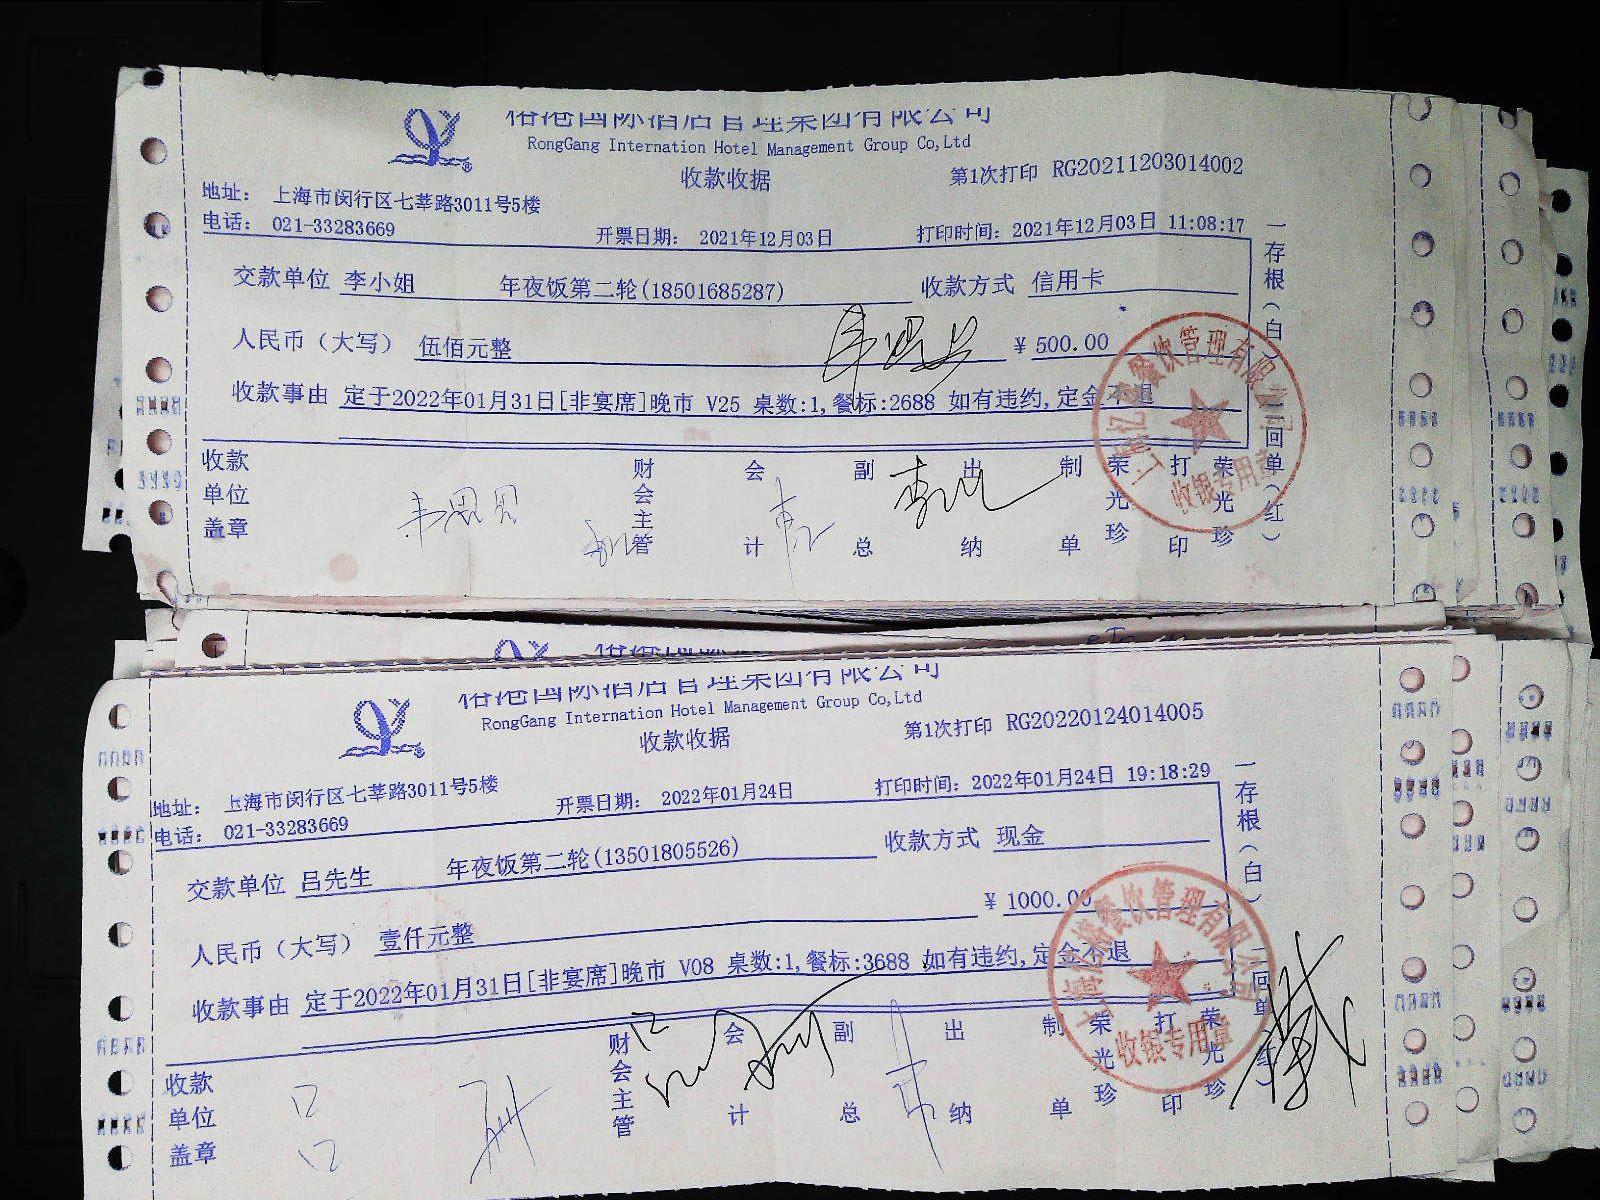 国际酒店管理集团有限公司
RongGang Internation Hotel Management Group Co,Ltd
收款收据
第1次打印 RG20211203014002
地址： 上海市闵行区七莘路3011号5楼
电话： 021-33283669
开票日期： 2021年12月03日
打印时间：2021年12月03日 11:08:17
交款单位 李小姐 年夜饭第二轮(18501685287) 收款方式 信用卡
人民币（大写） 伍佰元整 ¥ 500.00
收款事由 定于2022年01月31日[非宴席]晚市 V25 桌数:1,餐标:2688 如有违约,定金不退
收款单位盖章 财会主管 会计 副总 出纳 制单 荣光珍 打印 荣光珍
一存根（白） 二回单（红）
餐饮管理有限公司
收银专用章
国际酒店管理集团有限公司
RongGang Internation Hotel Management Group Co,Ltd
收款收据
第1次打印 RG20220124014005
地址： 上海市闵行区七莘路3011号5楼
电话： 021-33283669
开票日期： 2022年01月24日
打印时间：2022年01月24日 19:18:29
交款单位 吕先生 年夜饭第二轮(13501805526) 收款方式 现金
人民币（大写） 壹仟元整 ¥ 1000.00
收款事由 定于2022年01月31日[非宴席]晚市 V08 桌数:1,餐标:3688 如有违约,定金不退
收款单位盖章 财会主管 会计 副总 出纳 制单 荣光珍 打印 荣光珍
一存根（白） 二回单（红）
餐饮管理有限公司
收银专用章